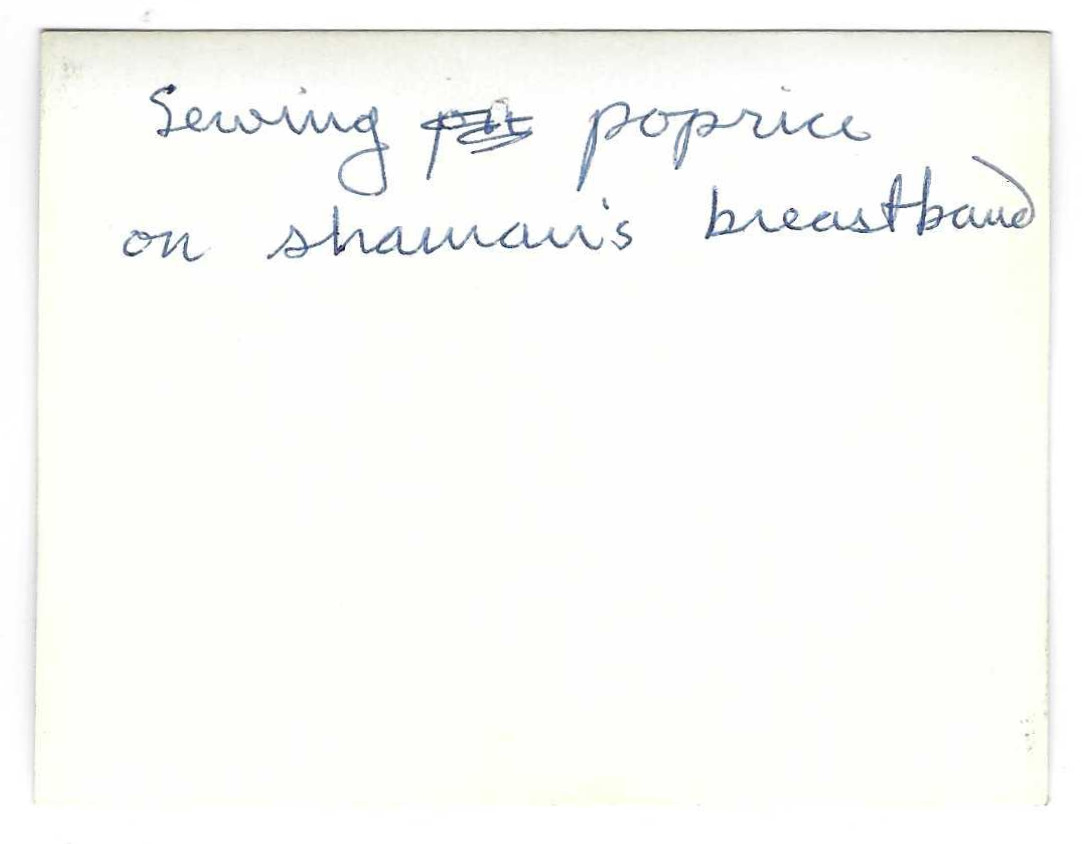 Sewing poprice
on shaman's breastband